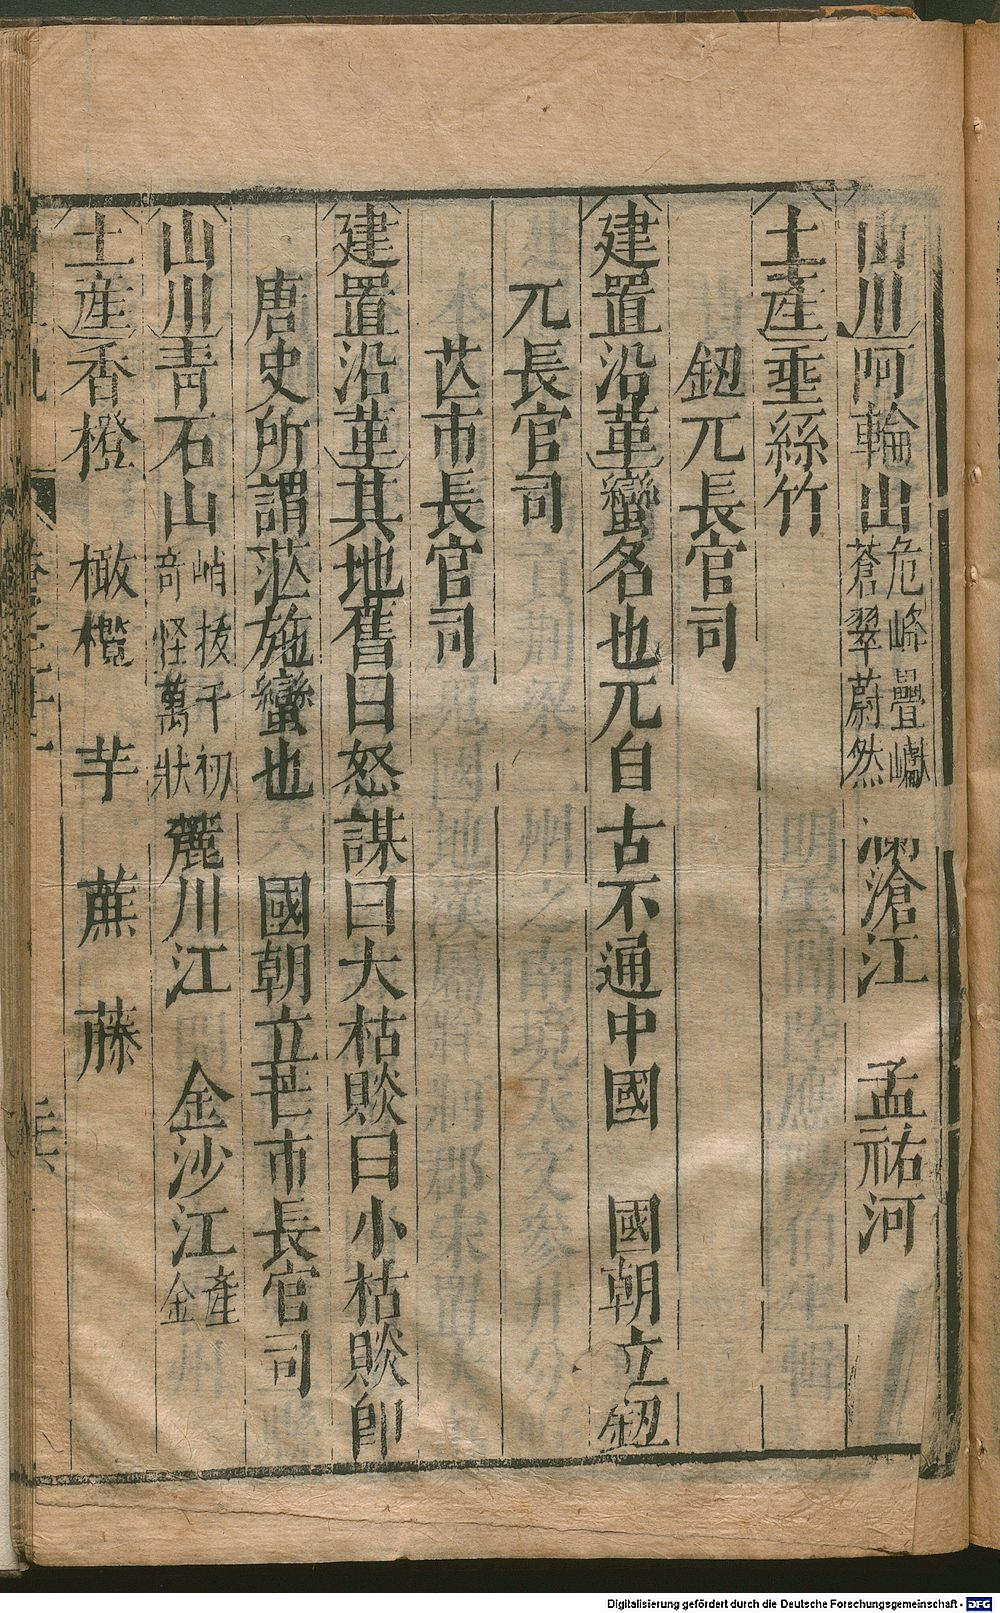 山川 阿輪山 危峰疊巘 蒼翠蔚然 瀾滄江 孟祐河
土産 垂絲竹
鈕兀長官司
建置沿革 蠻名也兀自古不通中國 國朝立鈕
兀長官司
芒市長官司
建置沿革 其地舊曰怒謀曰大枯賧曰小枯賧卽
唐史所謂茫施蠻也 國朝立芒市長官司
山川 青石山 峭拔千初 奇怪萬狀 麓川江 金沙江 産金
土産 香橙 橄欖 芋 蕉 藤
Digitalisierung gefördert durch die Deutsche Forschungsgemeinschaft - DFG